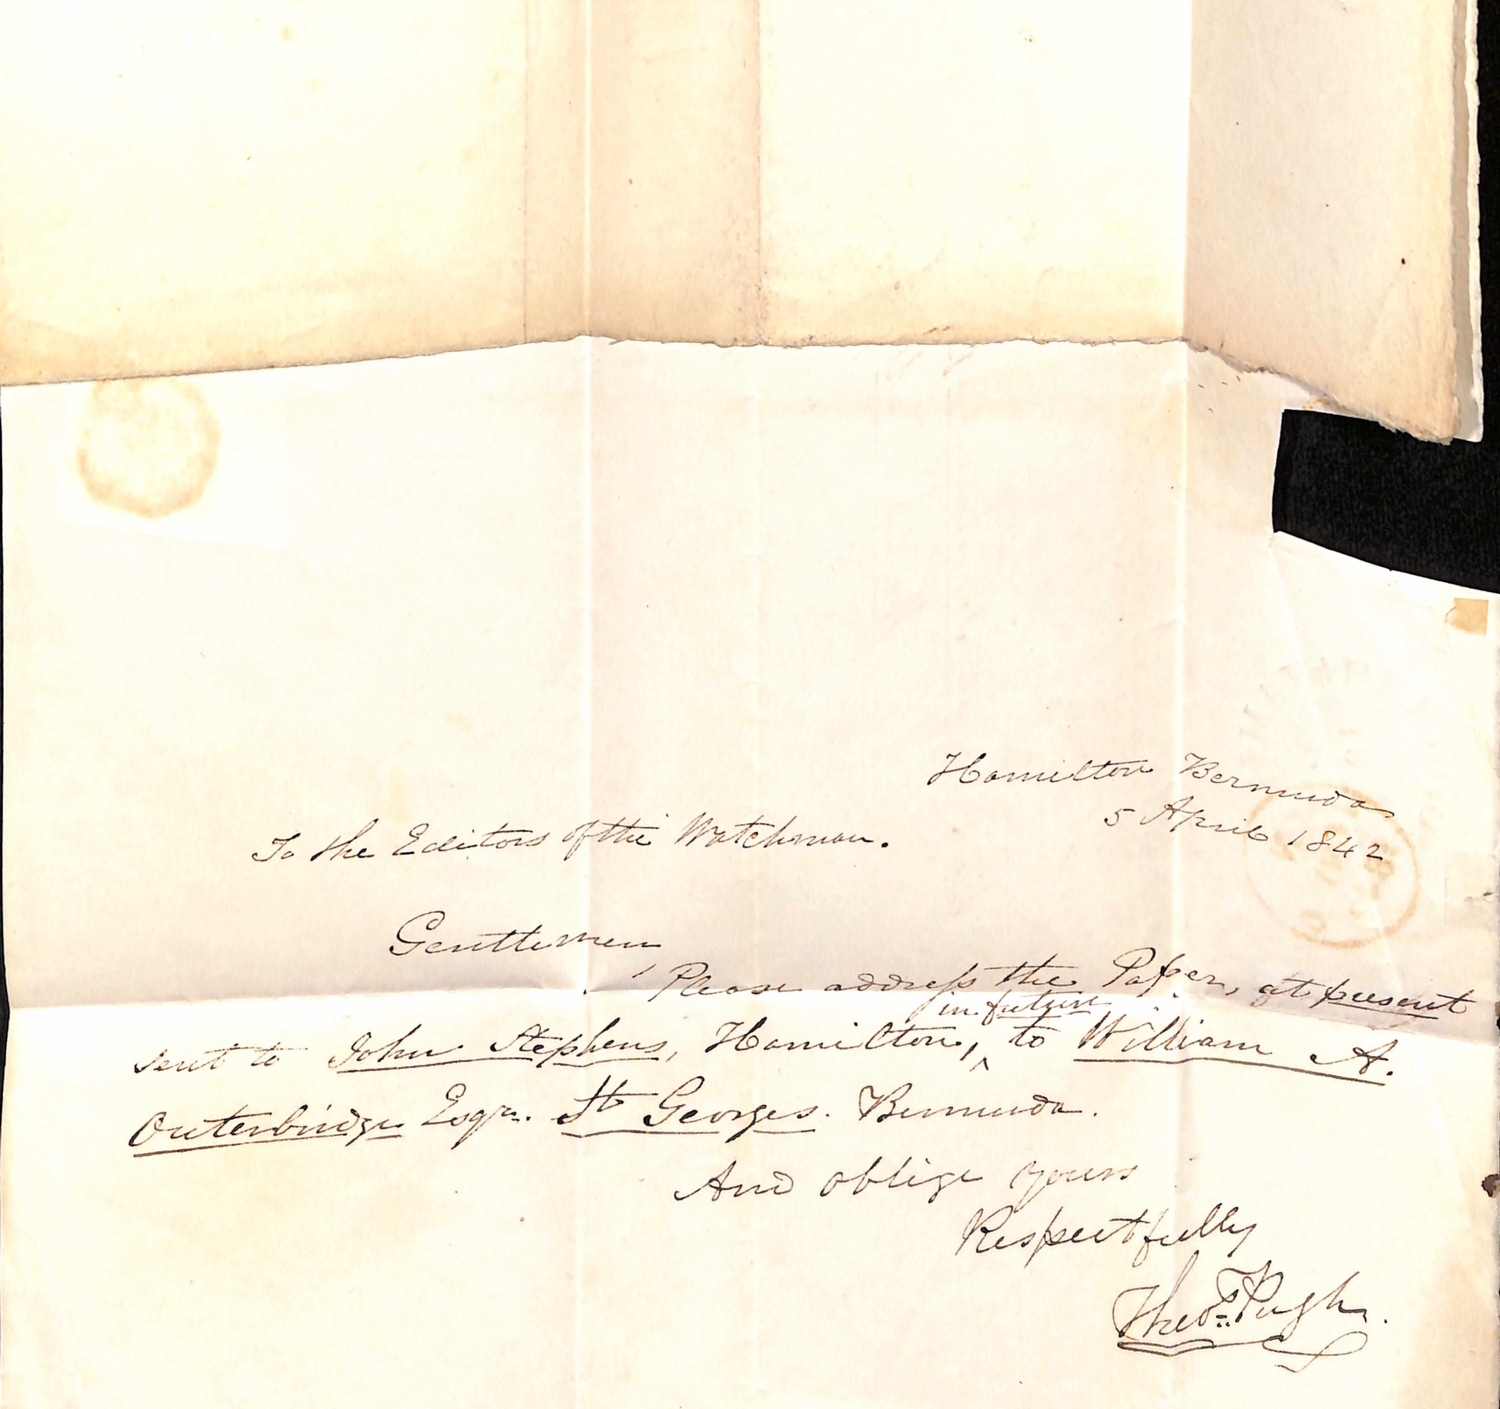 Hamilton Bermuda
5 April 1842
To the Editors of the Watchman.
Gentlemen,
Please address the Paper, at present
in future
sent to John Stephens, Hamilton, ^ to William A.
Outerbridge Esqr. St Georges. Bermuda.
And oblige yours
Respectfully
Pugh.